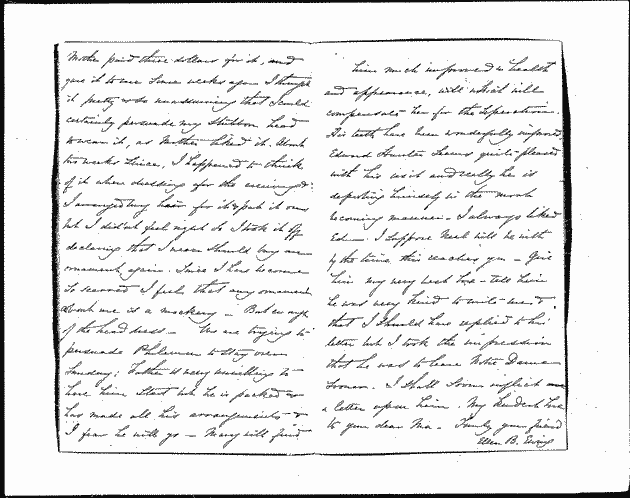 Mother paid three dollars for it, and
gave it to me some weeks ago. I thought
it pretty & so unassuming that I could
certainly persuade my stubborn head
to wear it, as Mother liked it. About
two weeks since, I happened to think
of it when dressing for the evening &
I arranged my hair for it & put it on
but I didn't feel right so I took it off
declaring that I never should buy an
ornament again. Since I has become
so scarred I feel that any ornament
about me is a mockery — But enough
of the head dress — We are trying to
persuade Philemon to stay over
Sunday; Father is very unwilling to
have him start but he is packed &
has made all his arrangements &
I fear he will go — Mary will find
him much improved in health
and appearance, will which will
compensate her for the separation.
His teeth have been wonderfully improved.
Edward Hunter seems quite pleased
with his visit and really he is
deporting himself in the most
becoming manner — I always liked
Ed — I suppose Neal will be with
by the time this reaches you — Give
him my very best love — tell him
he was very kind to write me &
that I should have replied to his
letter but I took the impression
that he was to leave Notre Dame
sooner. I shall soon inflict
a letter upon him. My kindest love
to your dear Ma — Truly your friend
Ellen B. Ewing